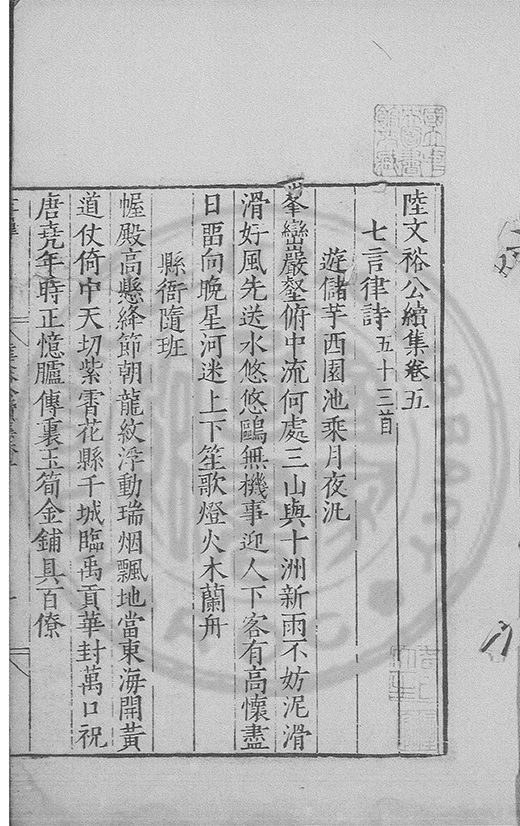 陸文裕公續集卷五
七言律詩五十三首
遊儲芋西園池乘月夜汎
峯巒嚴壑俯中流何處三山與十洲新雨不妨泥滑
滑好風先送水悠悠鷗無機事迎人下客有高懷盡
日畱向晚星河迷上下笙歌燈火木蘭舟
縣衙隨班
幄殿高懸絳節朝龍紋浮動瑞烟飄地當東海開黃
道仗倚中天切紫霄花縣千城臨禹貢華封萬口祝
唐堯年時正憶臚傳裏玉筍金鋪具百僚